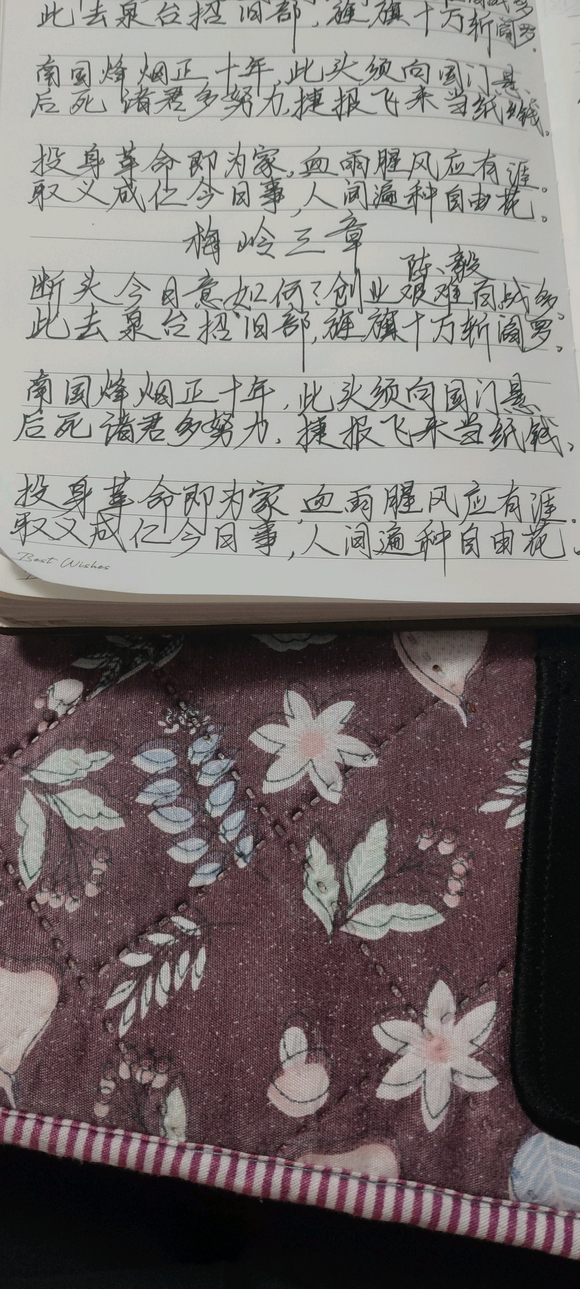 此去泉台招旧部,旌旗十万斩阎罗。
南国烽烟正十年,此头须向国门悬。
后死诸君多努力,捷报飞来当纸钱。
投身革命即为家,血雨腥风应有涯。
取义成仁今日事,人间遍种自由花。
梅岭三章
陈毅
断头今日意如何?创业艰难百战多。
此去泉台招旧部,旌旗十万斩阎罗。
南国烽烟正十年,此头须向国门悬
后死诸君多努力,捷报飞来当纸钱。
投身革命即为家,血雨腥风应有涯。
取义成仁今日事,人间遍种自由花。
Best Wishes